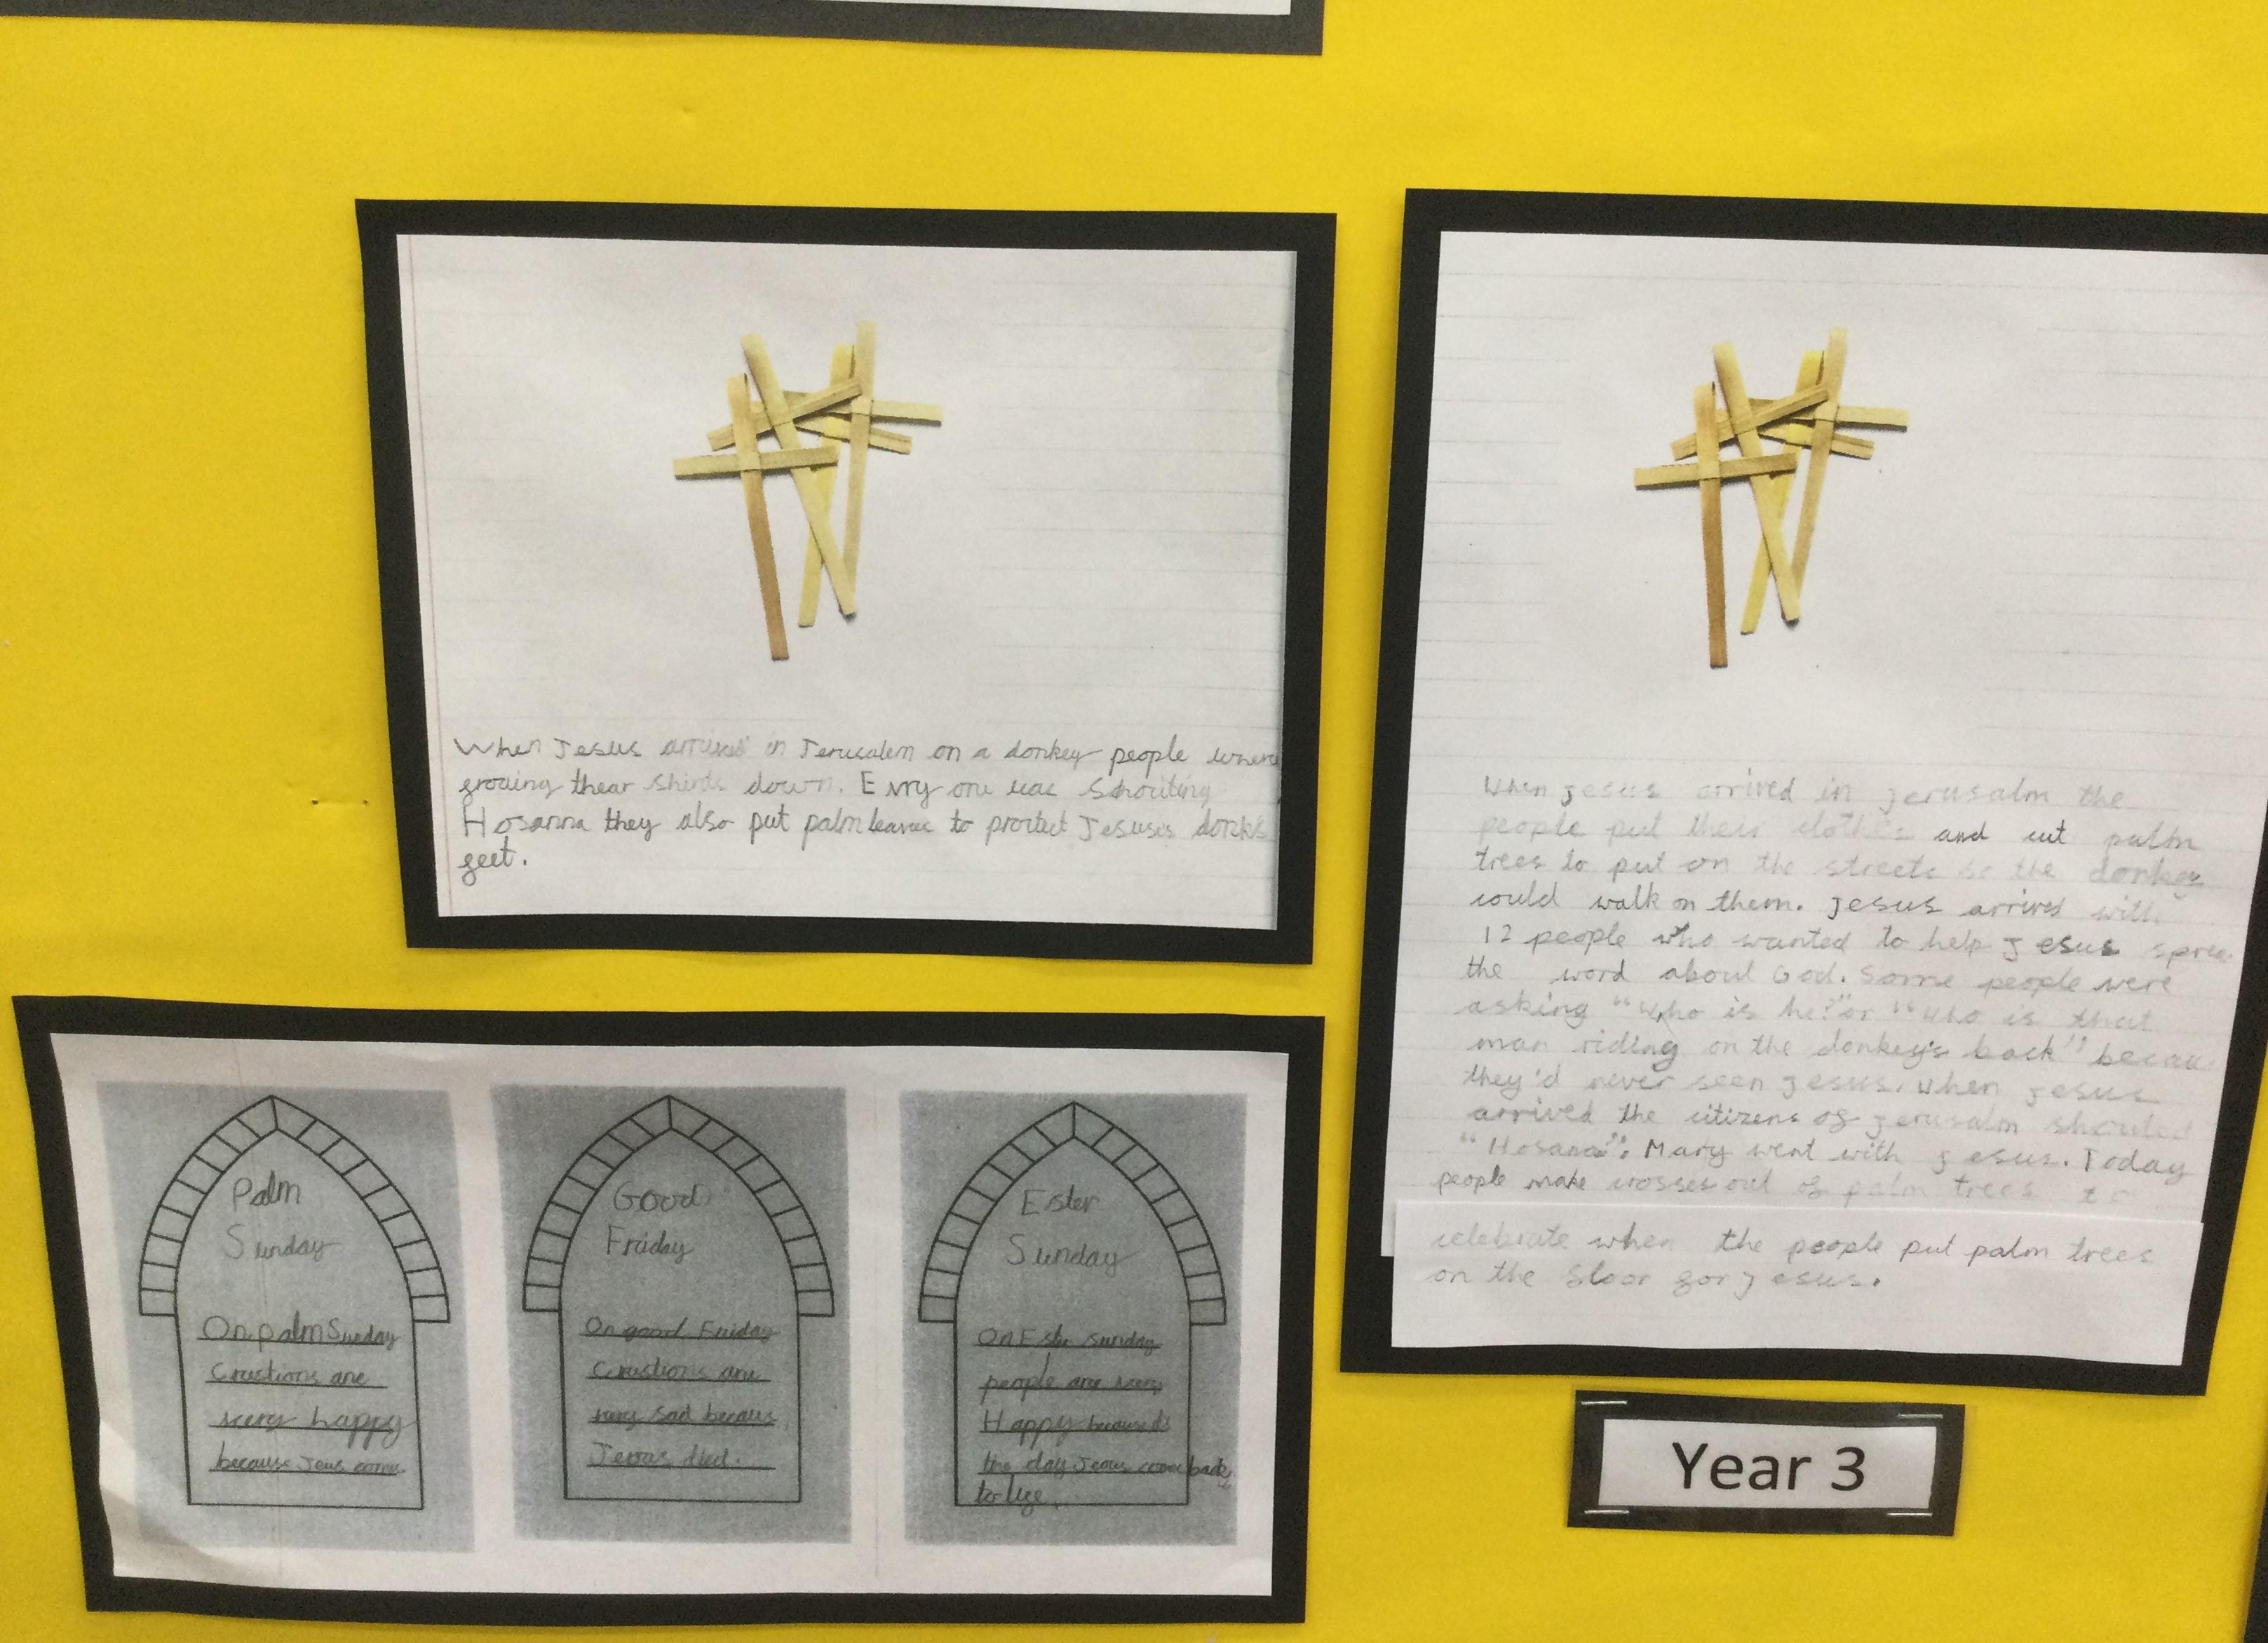 When Jesus arrived in Jerusalem on a donkey people where
groing thear shirts down. Evry one was Shouting
Hosanna they also put palm leaves to protect Jesuses
feet.
When Jesus arrived in Jerusalm the
people put their clothes and cut palm
trees to put on the streets so the donkey
could walk on them. Jesus arrived with
12 people who wanted to help Jesus
the word about God. Some people were
asking "Who is he?" or "who is that
man riding on the donkey's back" becau
they'd never seen Jesus. When Jesus
arrived the citizens of Jerusalm shouted
"Hosana". Mary went with Jesus. Today
people make crosses out of palm trees to
celebrate when the people put palm trees
on the floor for Jesus.
Palm
Sunday
On palm Sunday
Crastions are
very happy
because Jeus
Good
Friday
On good Friday
Crastions are
very sad becaus
died.
Ester
Sunday
On Sunday
people are very
Happy because it's
the day back
to life.
Year 3